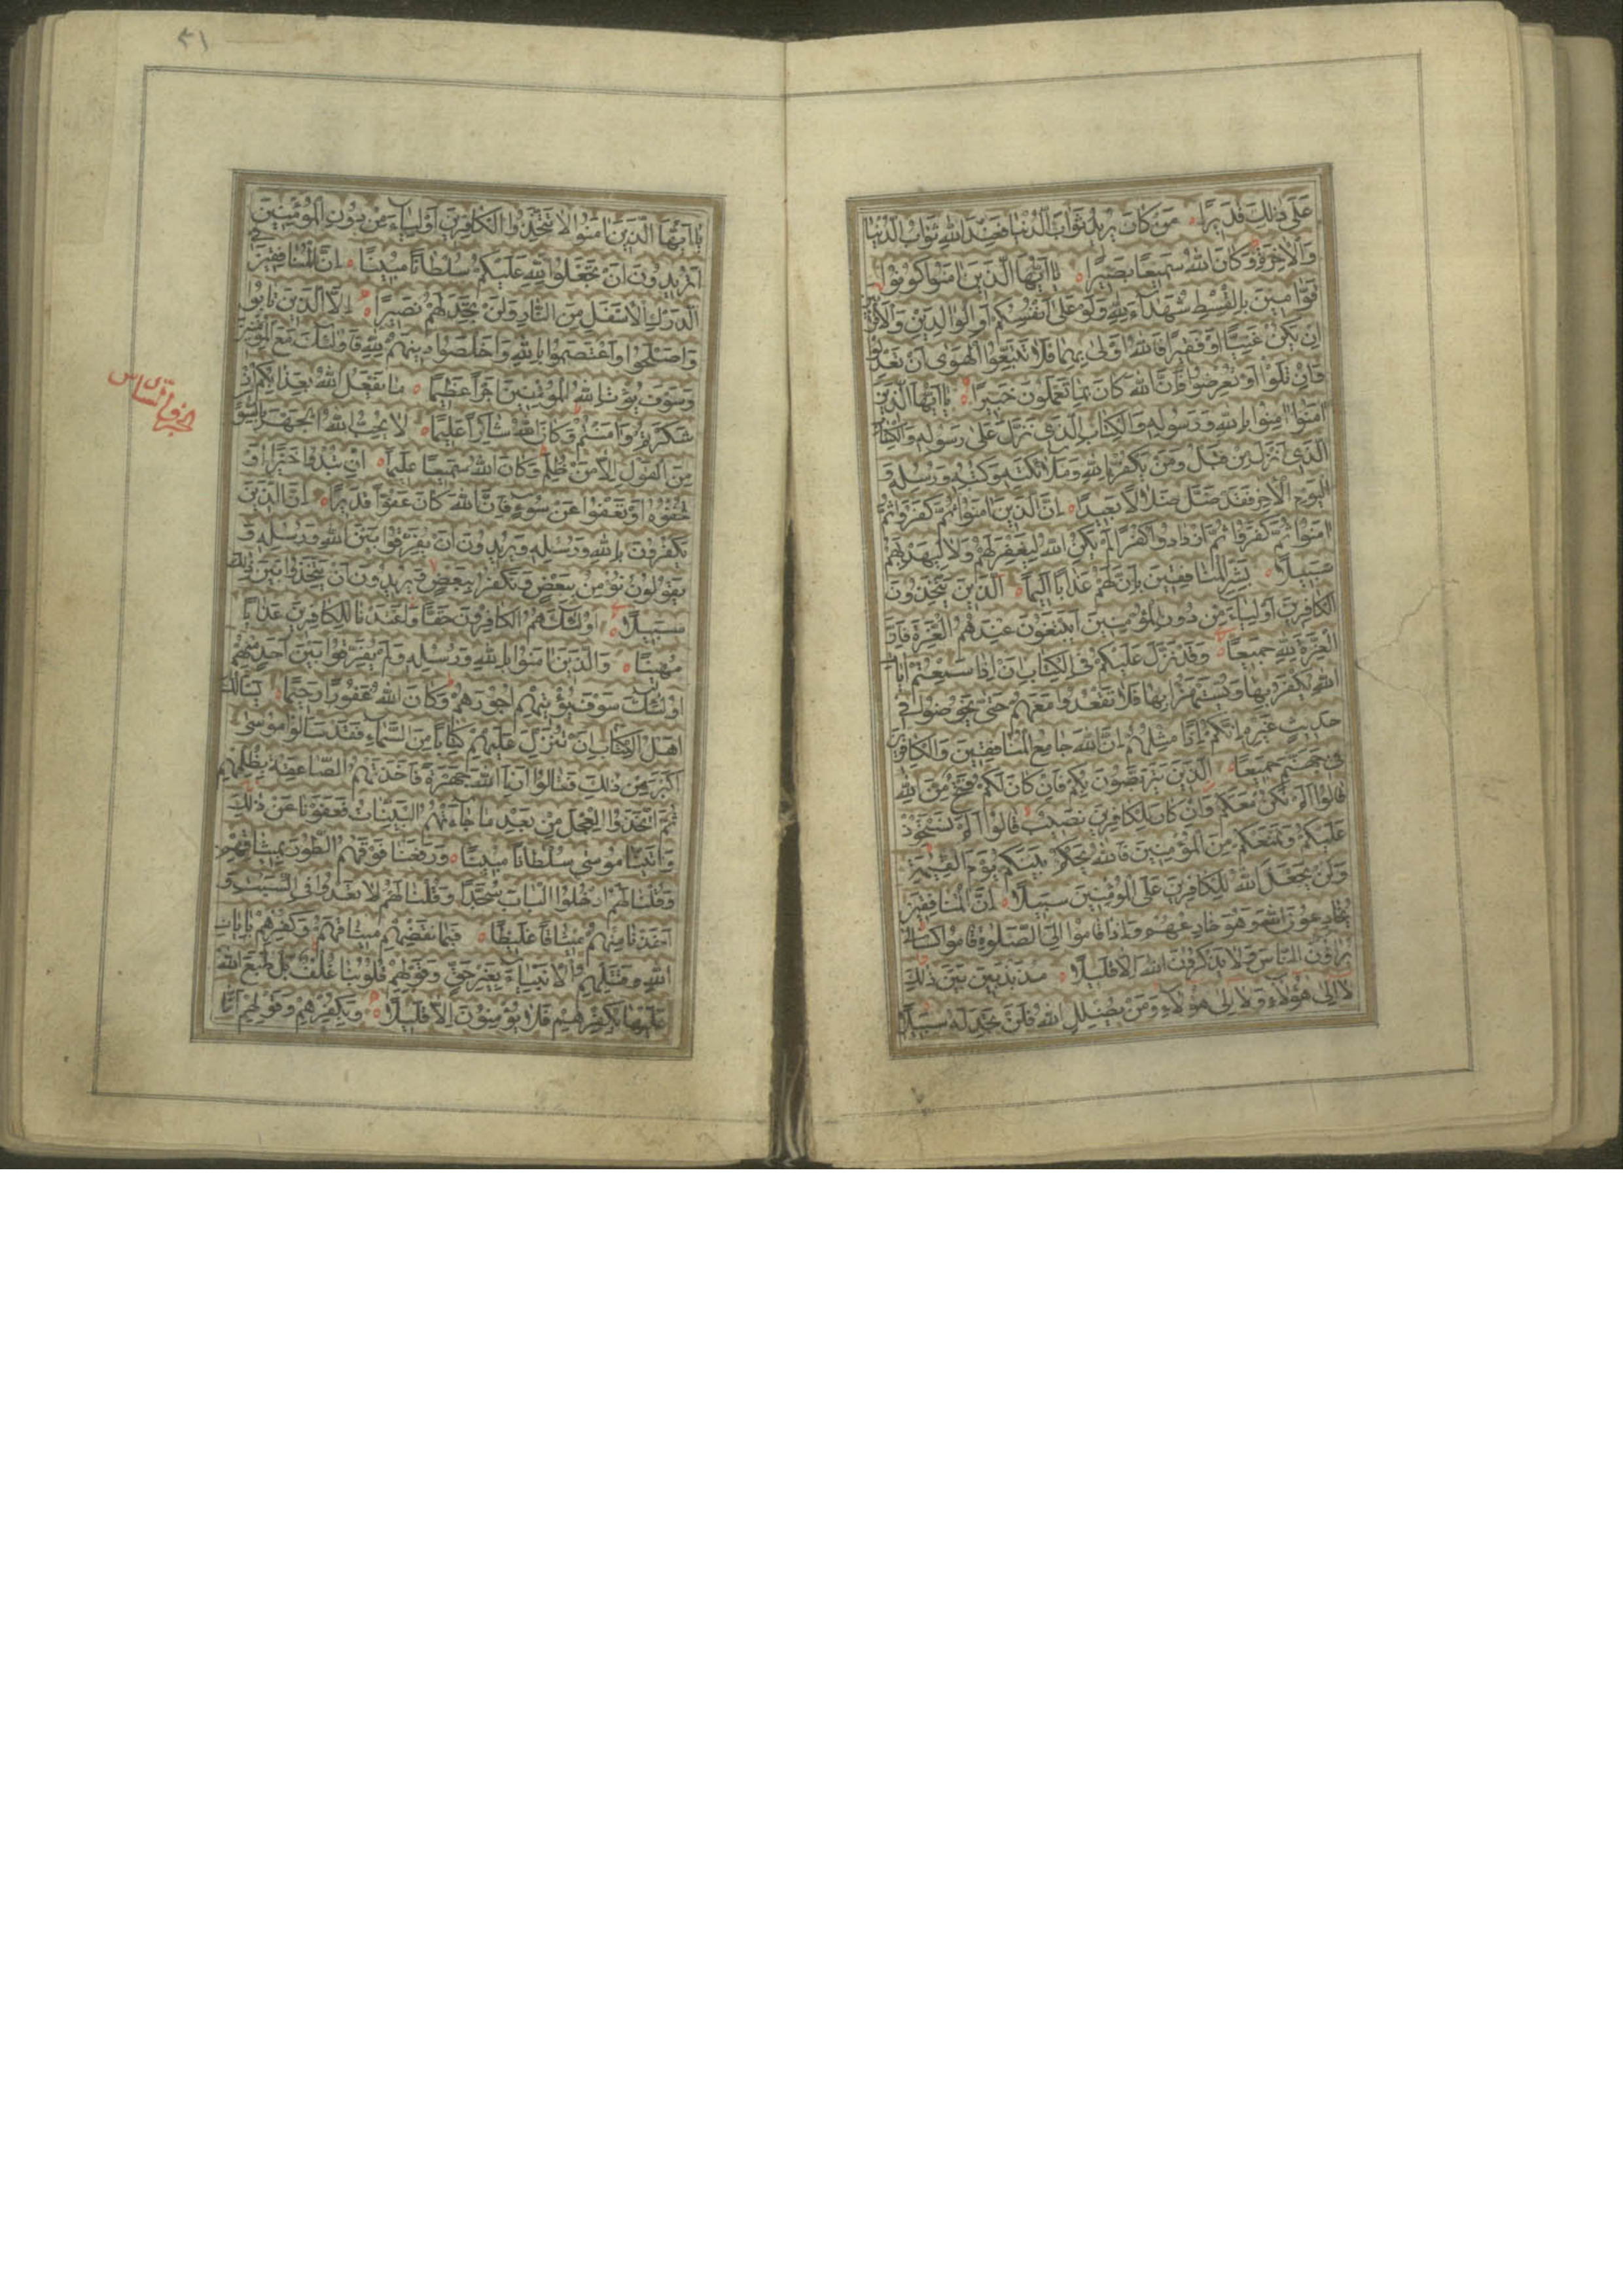 عَلٰى ذٰلِكَ قَدِيرًا ۝ مَنْ كَانَ يُرِيدُ ثَوَابَ الدُّنْيَا فَعِنْدَ اللّٰهِ ثَوَابُ الدُّنْيَا
وَالْاٰخِرَةِ وَكَانَ اللّٰهُ سَمِيعًا بَصِيرًا ۝ يَا اَيُّهَا الَّذِينَ اٰمَنُوا كُونُوا
قَوَّامِينَ بِالْقِسْطِ شُهَدَاءَ لِلّٰهِ وَلَوْ عَلٰى اَنْفُسِكُمْ اَوِ الْوَالِدَيْنِ وَالْاَقْرَبِينَ
اِنْ يَكُنْ غَنِيًّا اَوْ فَقِيرًا فَاللّٰهُ اَوْلٰى بِهِمَا فَلَا تَتَّبِعُوا الْهَوٰى اَنْ تَعْدِلُوا
وَاِنْ تَلْوُوا اَوْ تُعْرِضُوا فَاِنَّ اللّٰهَ كَانَ بِمَا تَعْمَلُونَ خَبِيرًا ۝ يَا اَيُّهَا الَّذِينَ
اٰمَنُوا اٰمِنُوا بِاللّٰهِ وَرَسُولِهِ وَالْكِتَابِ الَّذِى نَزَّلَ عَلٰى رَسُولِهِ وَالْكِتَابِ
الَّذِى اَنْزَلَ مِنْ قَبْلُ وَمَنْ يَكْفُرْ بِاللّٰهِ وَمَلَائِكَتِهِ وَكُتُبِهِ وَرُسُلِهِ وَ
الْيَوْمِ الْاٰخِرِ فَقَدْ ضَلَّ ضَلَالًا بَعِيدًا ۝ اِنَّ الَّذِينَ اٰمَنُوا ثُمَّ كَفَرُوا ثُمَّ
اٰمَنُوا ثُمَّ كَفَرُوا ثُمَّ ازْدَادُوا كُفْرًا لَمْ يَكُنِ اللّٰهُ لِيَغْفِرَ لَهُمْ وَلَا لِيَهْدِيَهُمْ
سَبِيلًا ۝ بَشِّرِ الْمُنَافِقِينَ بِاَنَّ لَهُمْ عَذَابًا اَلِيمًا ۝ الَّذِينَ يَتَّخِذُونَ
الْكَافِرِينَ اَوْلِيَاءَ مِنْ دُونِ الْمُؤْمِنِينَ اَيَبْتَغُونَ عِنْدَهُمُ الْعِزَّةَ فَاِنَّ
الْعِزَّةَ لِلّٰهِ جَمِيعًا ۝ وَقَدْ نَزَّلَ عَلَيْكُمْ فِى الْكِتَابِ اَنْ اِذَا سَمِعْتُمْ اٰيَاتِ
اللّٰهِ يُكْفَرُ بِهَا وَيُسْتَهْزَأُ بِهَا فَلَا تَقْعُدُوا مَعَهُمْ حَتّٰى يَخُوضُوا فِى
حَدِيثٍ غَيْرِهِ اِنَّكُمْ اِذًا مِثْلُهُمْ اِنَّ اللّٰهَ جَامِعُ الْمُنَافِقِينَ وَالْكَافِرِينَ
فِى جَهَنَّمَ جَمِيعًا ۝ الَّذِينَ يَتَرَبَّصُونَ بِكُمْ فَاِنْ كَانَ لَكُمْ فَتْحٌ مِنَ اللّٰهِ
قَالُوا اَلَمْ نَكُنْ مَعَكُمْ وَاِنْ كَانَ لِلْكَافِرِينَ نَصِيبٌ قَالُوا اَلَمْ نَسْتَحْوِذْ
عَلَيْكُمْ وَنَمْنَعْكُمْ مِنَ الْمُؤْمِنِينَ فَاللّٰهُ يَحْكُمُ بَيْنَكُمْ يَوْمَ الْقِيٰمَةِ
وَلَنْ يَجْعَلَ اللّٰهُ لِلْكَافِرِينَ عَلَى الْمُؤْمِنِينَ سَبِيلًا ۝ اِنَّ الْمُنَافِقِينَ
يُخَادِعُونَ اللّٰهَ وَهُوَ خَادِعُهُمْ وَاِذَا قَامُوا اِلَى الصَّلٰوةِ قَامُوا كُسَالٰى
يُرَاؤُنَ النَّاسَ وَلَا يَذْكُرُونَ اللّٰهَ اِلَّا قَلِيلًا ۝ مُذَبْذَبِينَ بَيْنَ ذٰلِكَ
لَا اِلٰى هٰؤُلَاءِ وَلَا اِلٰى هٰؤُلَاءِ وَمَنْ يُضْلِلِ اللّٰهُ فَلَنْ تَجِدَ لَهُ سَبِيلًا
يَا اَيُّهَا الَّذِينَ اٰمَنُوا لَا تَتَّخِذُوا الْكَافِرِينَ اَوْلِيَاءَ مِنْ دُونِ الْمُؤْمِنِينَ
اَتُرِيدُونَ اَنْ تَجْعَلُوا لِلّٰهِ عَلَيْكُمْ سُلْطَانًا مُبِينًا ۝ اِنَّ الْمُنَافِقِينَ فِى
الدَّرْكِ الْاَسْفَلِ مِنَ النَّارِ وَلَنْ تَجِدَ لَهُمْ نَصِيرًا ۝ اِلَّا الَّذِينَ تَابُوا
وَاَصْلَحُوا وَاعْتَصَمُوا بِاللّٰهِ وَاَخْلَصُوا دِينَهُمْ لِلّٰهِ فَاُولٰئِكَ مَعَ الْمُؤْمِنِينَ
وَسَوْفَ يُؤْتِ اللّٰهُ الْمُؤْمِنِينَ اَجْرًا عَظِيمًا ۝ مَا يَفْعَلُ اللّٰهُ بِعَذَابِكُمْ اِنْ
شَكَرْتُمْ وَاٰمَنْتُمْ وَكَانَ اللّٰهُ شَاكِرًا عَلِيمًا ۝ لَا يُحِبُّ اللّٰهُ الْجَهْرَ بِالسُّوءِ
مِنَ الْقَوْلِ اِلَّا مَنْ ظُلِمَ وَكَانَ اللّٰهُ سَمِيعًا عَلِيمًا ۝ اِنْ تُبْدُوا خَيْرًا اَوْ
تُخْفُوهُ اَوْ تَعْفُوا عَنْ سُوءٍ فَاِنَّ اللّٰهَ كَانَ عَفُوًّا قَدِيرًا ۝ اِنَّ الَّذِينَ
يَكْفُرُونَ بِاللّٰهِ وَرُسُلِهِ وَيُرِيدُونَ اَنْ يُفَرِّقُوا بَيْنَ اللّٰهِ وَرُسُلِهِ وَ
يَقُولُونَ نُؤْمِنُ بِبَعْضٍ وَنَكْفُرُ بِبَعْضٍ وَيُرِيدُونَ اَنْ يَتَّخِذُوا بَيْنَ ذٰلِكَ
سَبِيلًا ۝ اُولٰئِكَ هُمُ الْكَافِرُونَ حَقًّا وَاَعْتَدْنَا لِلْكَافِرِينَ عَذَابًا
مُهِينًا ۝ وَالَّذِينَ اٰمَنُوا بِاللّٰهِ وَرُسُلِهِ وَلَمْ يُفَرِّقُوا بَيْنَ اَحَدٍ مِنْهُمْ
اُولٰئِكَ سَوْفَ يُؤْتِيهِمْ اُجُورَهُمْ وَكَانَ اللّٰهُ غَفُورًا رَحِيمًا ۝ يَسْأَلُكَ
اَهْلُ الْكِتَابِ اَنْ تُنَزِّلَ عَلَيْهِمْ كِتَابًا مِنَ السَّمَاءِ فَقَدْ سَأَلُوا مُوسٰى
اَكْبَرَ مِنْ ذٰلِكَ فَقَالُوا اَرِنَا اللّٰهَ جَهْرَةً فَاَخَذَتْهُمُ الصَّاعِقَةُ بِظُلْمِهِمْ
ثُمَّ اتَّخَذُوا الْعِجْلَ مِنْ بَعْدِ مَا جَاءَتْهُمُ الْبَيِّنَاتُ فَعَفَوْنَا عَنْ ذٰلِكَ
وَاٰتَيْنَا مُوسٰى سُلْطَانًا مُبِينًا ۝ وَرَفَعْنَا فَوْقَهُمُ الطُّورَ بِمِيثَاقِهِمْ
وَقُلْنَا لَهُمُ ادْخُلُوا الْبَابَ سُجَّدًا وَقُلْنَا لَهُمْ لَا تَعْدُوا فِى السَّبْتِ وَ
اَخَذْنَا مِنْهُمْ مِيثَاقًا غَلِيظًا ۝ فَبِمَا نَقْضِهِمْ مِيثَاقَهُمْ وَكُفْرِهِمْ بِاٰيَاتِ
اللّٰهِ وَقَتْلِهِمُ الْاَنْبِيَاءَ بِغَيْرِ حَقٍّ وَقَوْلِهِمْ قُلُوبُنَا غُلْفٌ بَلْ طَبَعَ اللّٰهُ
عَلَيْهَا بِكُفْرِهِمْ فَلَا يُؤْمِنُونَ اِلَّا قَلِيلًا ۝ وَبِكُفْرِهِمْ وَقَوْلِهِمْ اِنَّا